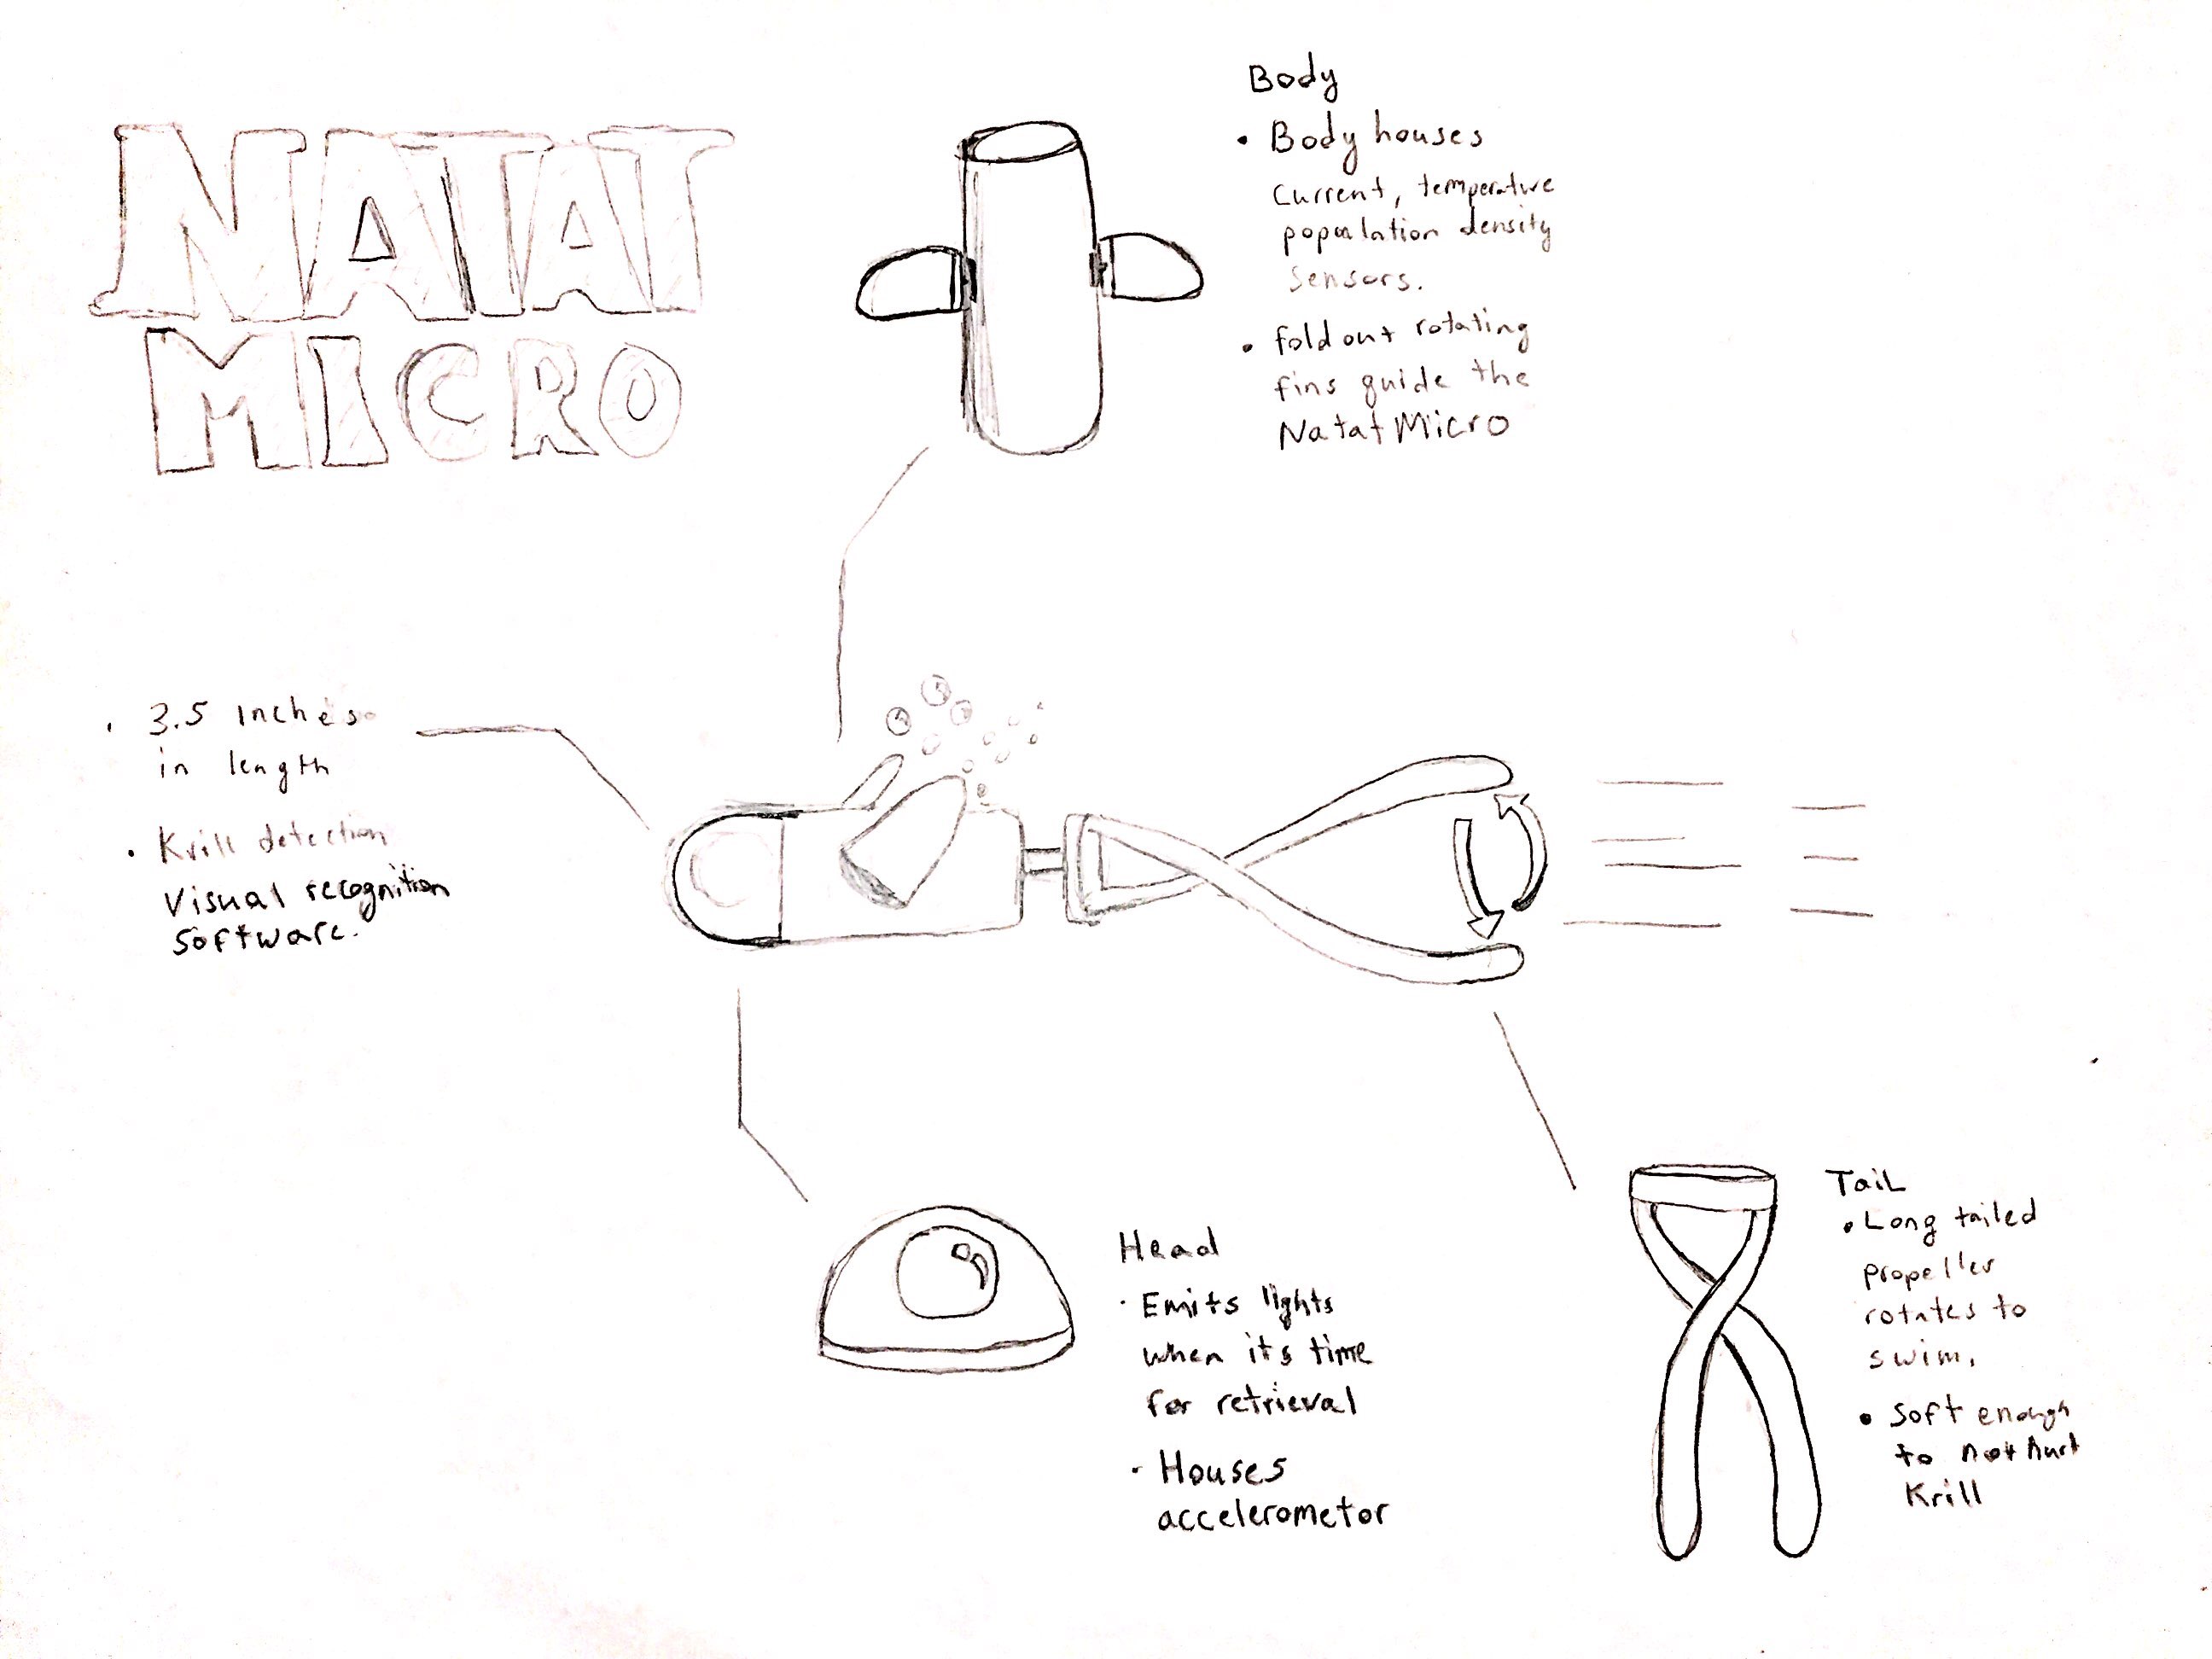 NATAT
MICRO
Body
• Body houses
Current, temperature
population density
Sensors.
• fold out rotating
fins guide the
Natat Micro
• 3.5 inches
in length
• Krill detection
Visual recognition
Software.
Head
• Emits lights
when its time
for retrieval
• Houses
accelerometor
Tail
• Long tailed
propeller
rotates to
swim.
• Soft enough
to not hurt
Krill